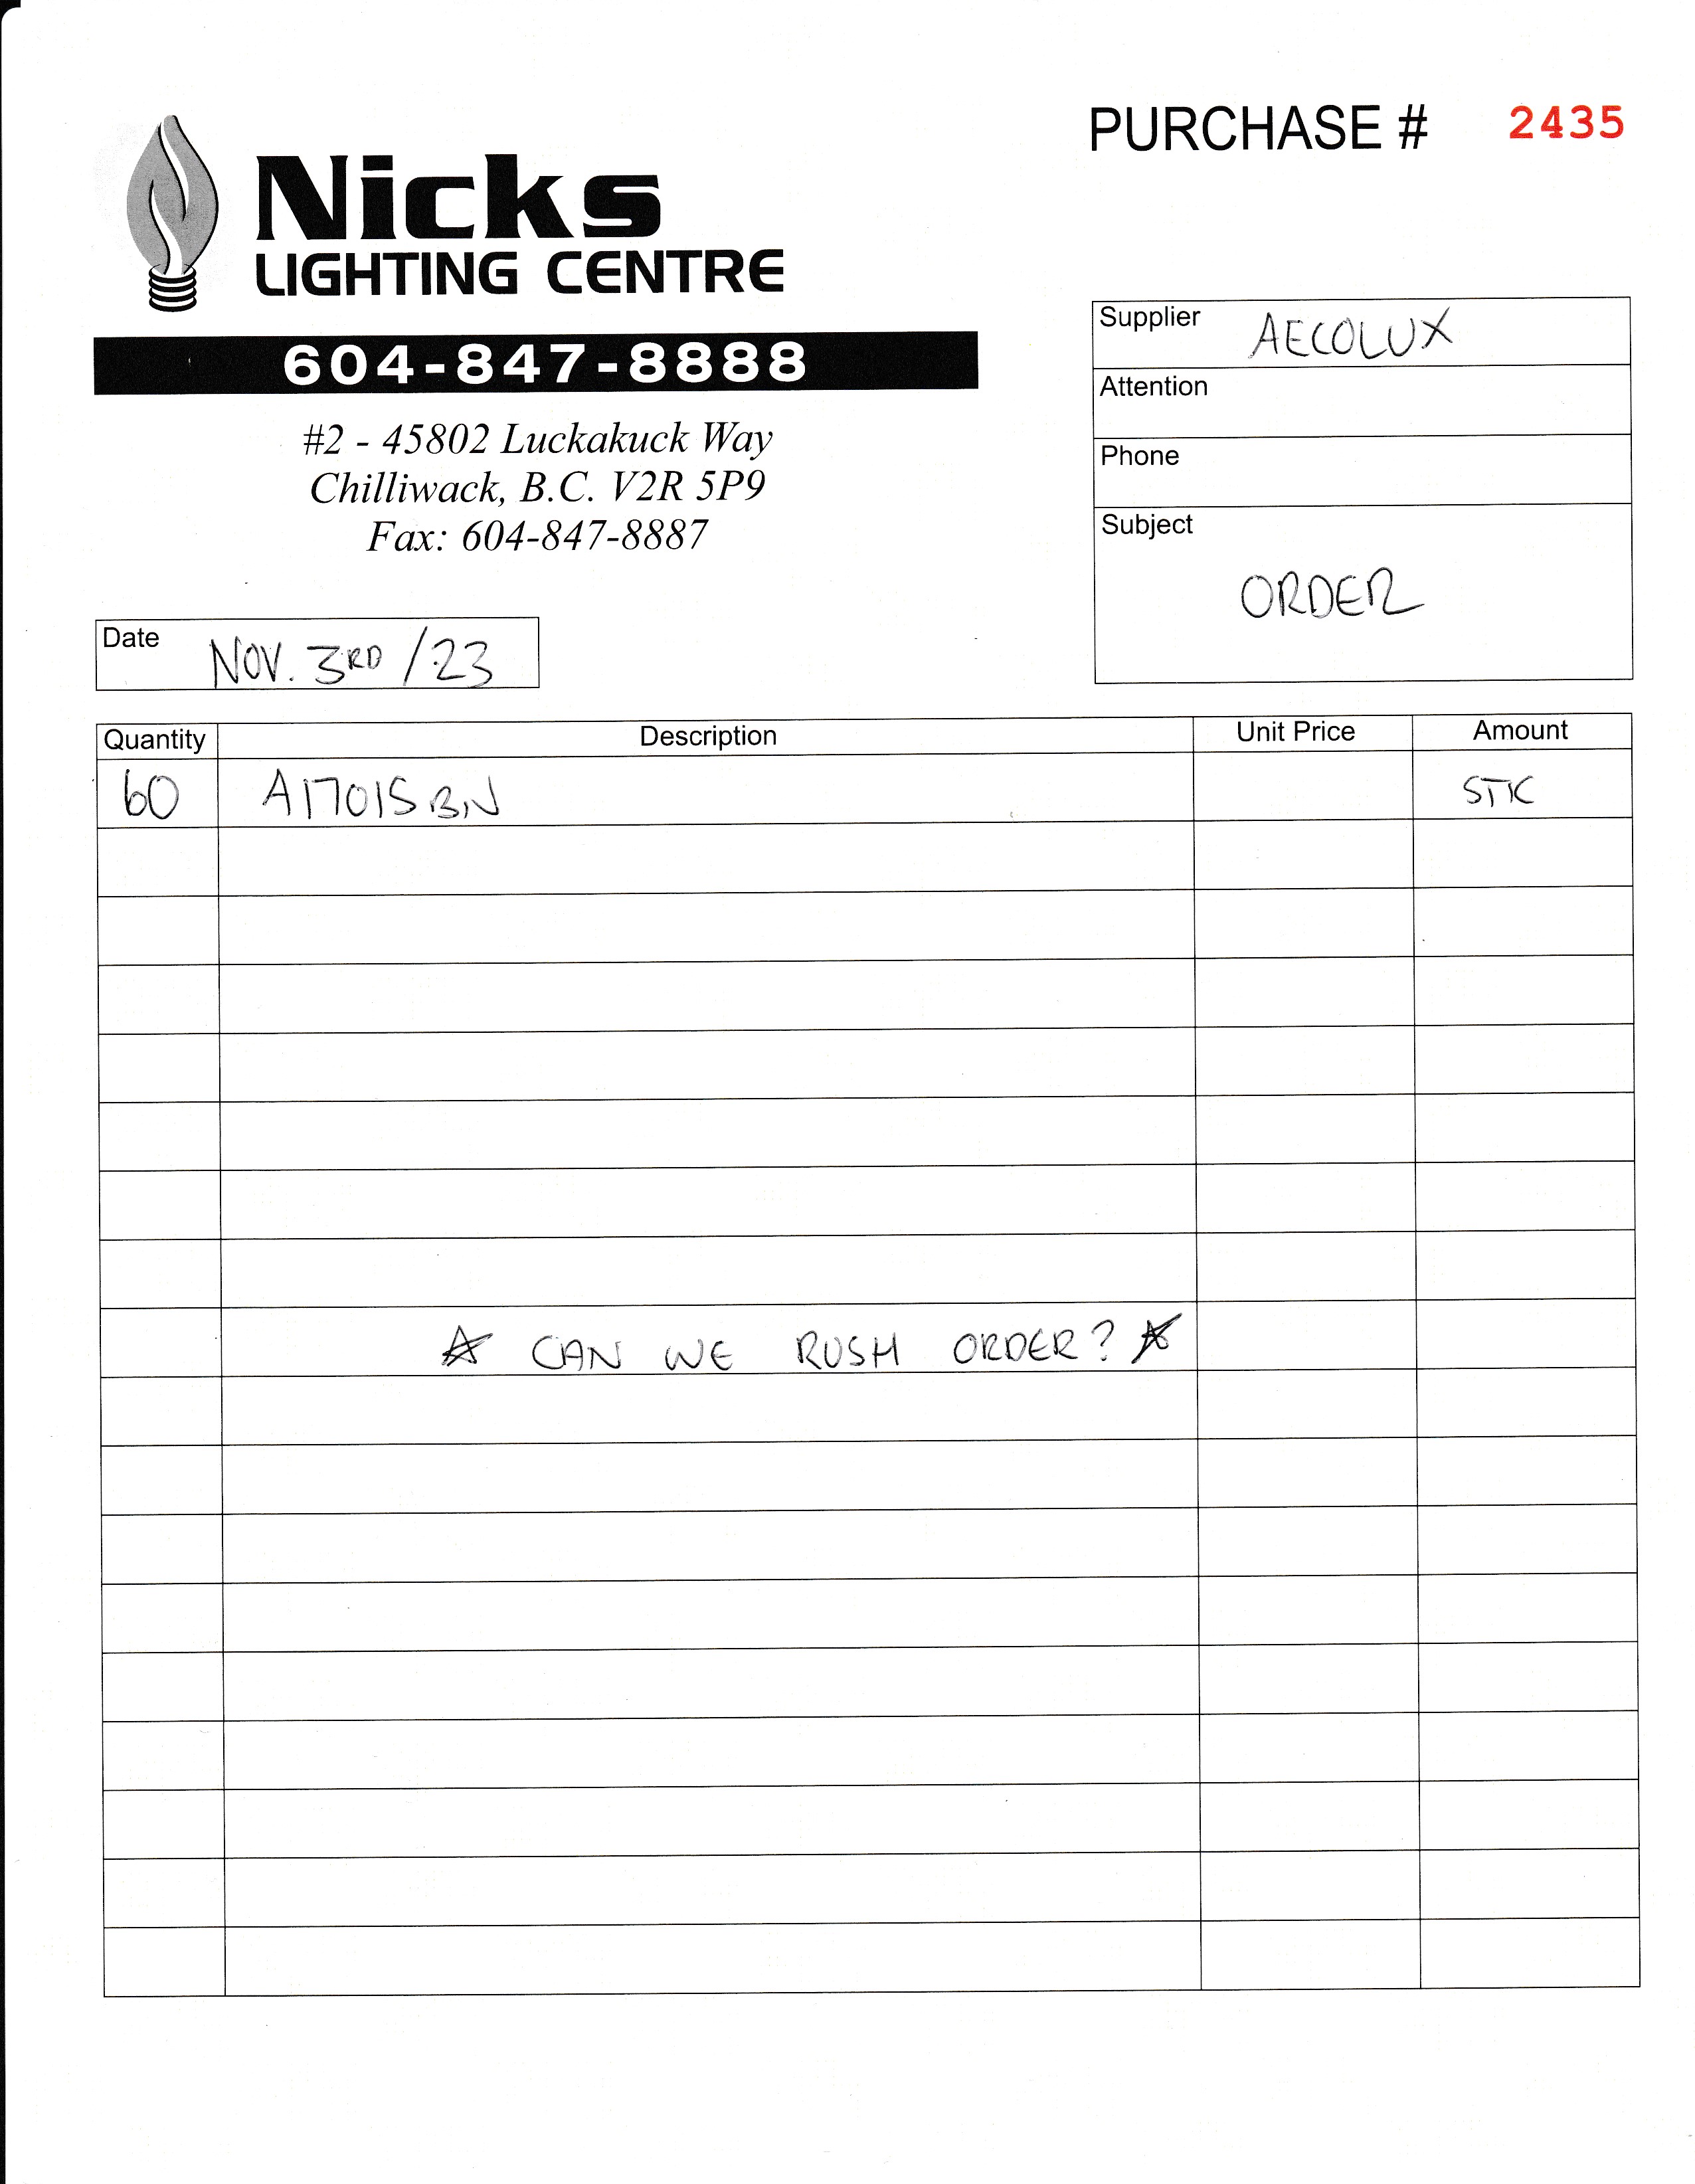 PURCHASE # 2435
Nicks
LIGHTING CENTRE
604-847-8888
#2 - 45802 Luckakuck Way
Chilliwack, B.C. V2R 5P9
Fax: 604-847-8887
Supplier AECOLUX
Attention
Phone
Subject
ORDER
Date NOV. 3RD /23
Quantity Description Unit Price Amount
60 A1701SBN STK
☆ CAN WE RUSH ORDER? ☆